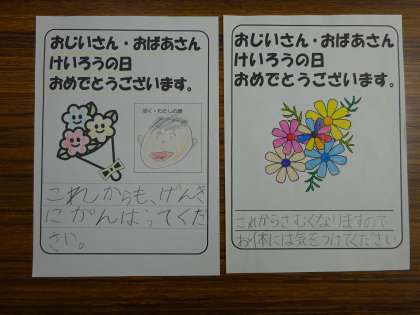 おじいさん・おばあさん
けいろうの日
おめでとうございます。
ぼく・わたしの顔
これからも、げんき
にがんばってくだ
さい。
おじいさん・おばあさん
けいろうの日
おめでとうございます。
これからさむくなりますので
お体には気をつけてください